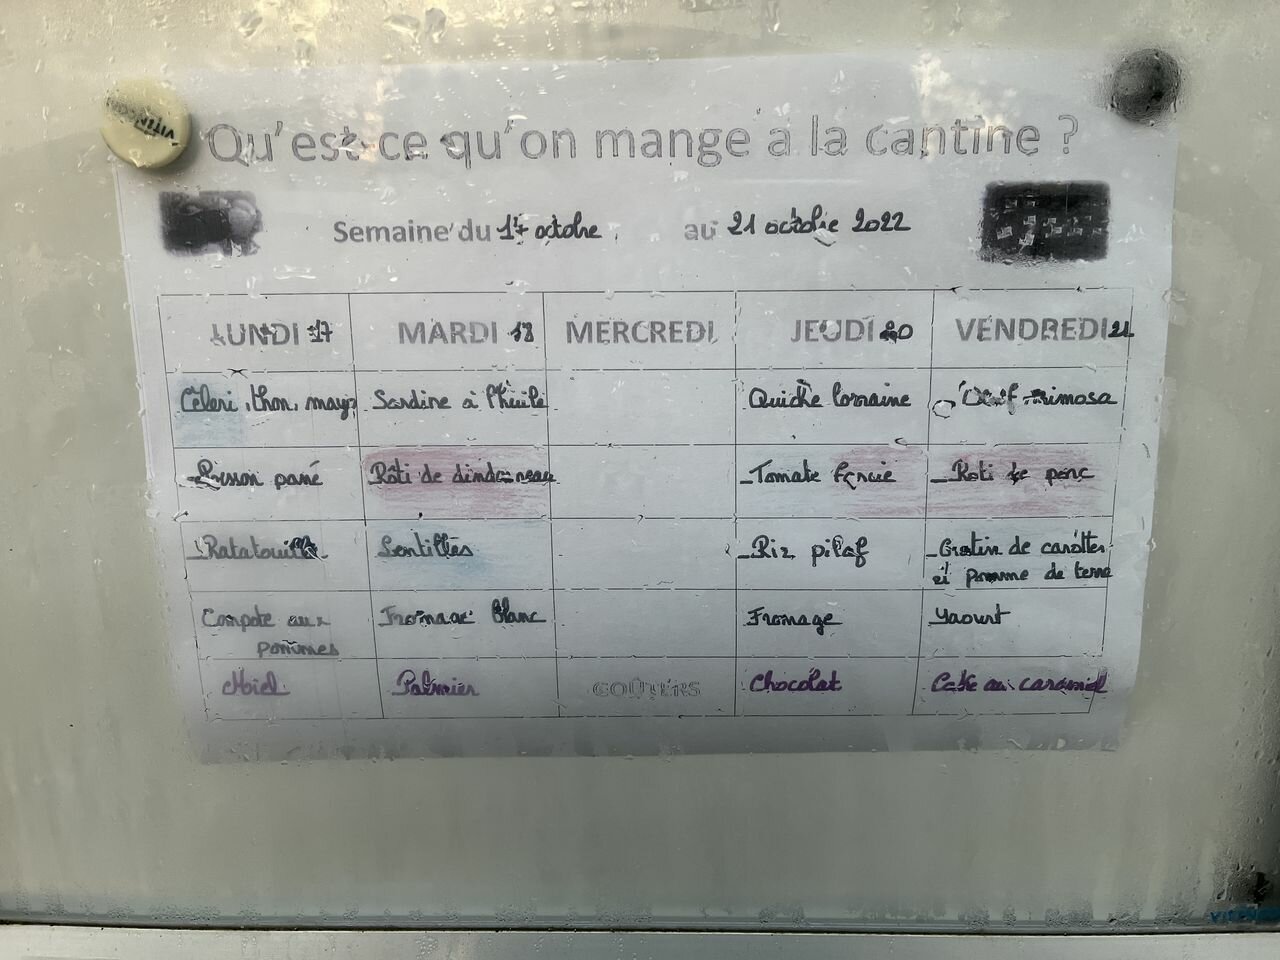 Qu'est-ce qu'on mange à la cantine ?
Semaine du 17 octobre au 21 octobre 2022
LUNDI 17 MARDI 18 MERCREDI JEUDI 20 VENDREDI 21
Céleri, thon, mayo Sardine à l'huile Quiche lorraine Oeuf mimosa
Poisson pané Rôti de dindonneau Tomate farcie Roti de porc
Ratatouille Lentilles Riz pilaf Gratin de carottes
et pomme de terre
Compote aux Fromage blanc Fromage Yaourt
pommes
Miel Palmier GOÛTERS Chocolat Cake au caramel